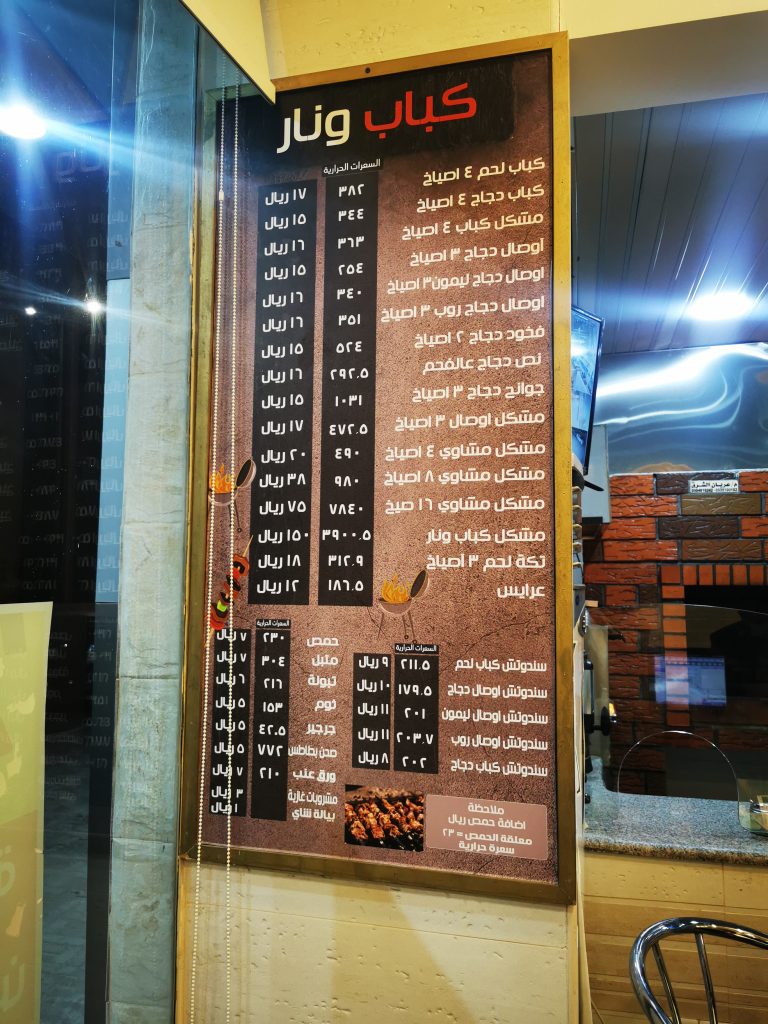 كباب ونار
السعرات الحرارية
كباب لحم ٤ اصياخ ٣٨٢ ١٧ ريال
كباب دجاج ٤ اصياخ ٣٤٤ ١٥ ريال
مشكل كباب ٤ اصياخ ٣٦٣ ١٦ ريال
اوصال دجاج ٣ اصياخ ٢٥٤ ١٥ ريال
اوصال دجاج ليمون٣ اصياخ ٣٤٠ ١٦ ريال
اوصال دجاج روب ٣ اصياخ ٣٥١ ١٦ ريال
فخود دجاج ٢ اصياخ ٥٢٤ ١٥ ريال
نص دجاج عالفحم ٢٩٢.٥ ١٦ ريال
جوانح دجاج ٣ اصياخ ١٠٣١ ١٥ ريال
مشكل اوصال ٣ اصياخ ٤٧٢.٥ ١٧ ريال
مشكل مشاوي ٤ اصياخ ٤٩٠ ٢٠ ريال
مشكل مشاوي ٨ اصياخ ٩٨٠ ٣٨ ريال
مشكل مشاوي ١٦ صيخ ٧٨٤٠ ٧٥ ريال
مشكل كباب ونار ٣٩٠٠.٥ ١٥٠ ريال
تكة لحم ٣ اصياخ ٣١٢.٩ ١٨ ريال
عرايس ١٨٦.٥ ١٢ ريال
السعرات الحرارية
سندوتش كباب لحم ٢١١.٥ ٩ ريال
سندوتش اوصال دجاج ١٧٩.٥ ١٠ ريال
سندوتش اوصال ليمون ٢٠١ ١١ ريال
سندوتش اوصال روب ٢٠٣.٧ ١١ ريال
سندوتش كباب دجاج ٢٠٢ ٨ ريال
السعرات الحرارية
حمص ٢٣٠ ٧ ريال
متبل ٣٠٤ ٧ ريال
تبولة ٢١٦ ٦ ريال
ثوم ١٥٣ ٥ ريال
جرجير ٤٢.٥ ٥ ريال
صحن بطاطس ٧٧٢ ٥ ريال
ورق عنب ٢١٠ ٧ ريال
مشروبات غازية ٣ ريال
بيالة شاي ١ ريال
ملاحظة
اضافة حمص ريال
معلقة الحمص = ٢٣
سعرة حرارية